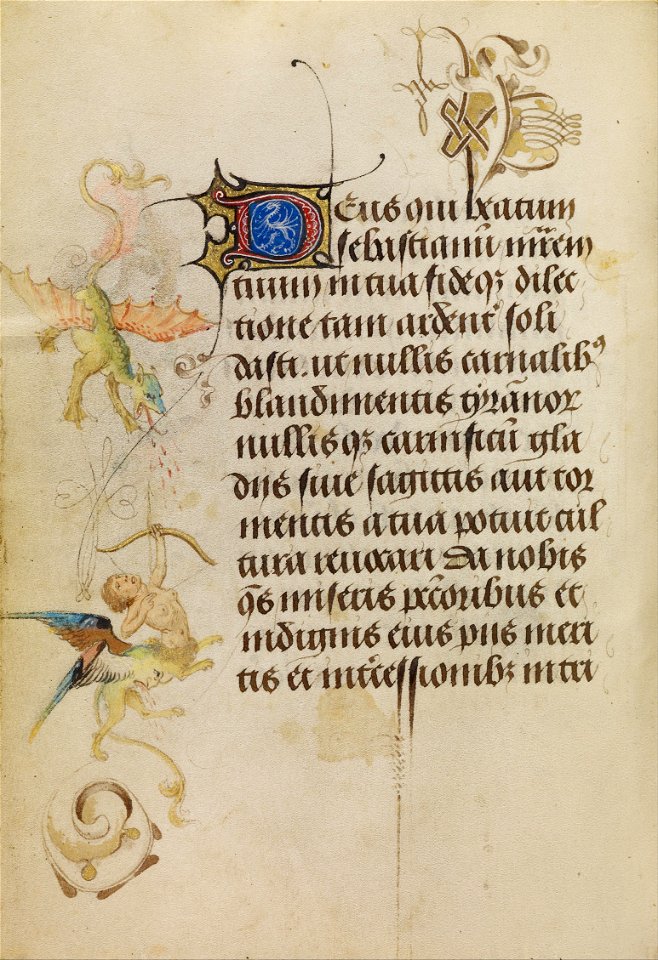 Deus qui beatum
sebastianū mr̄em
tuum in tua fideqȝ dilec
tione tam ardent᷒ soli
dasti. ut nullis carnalibꝰ
blandimentis tyrānor
nullisqȝ carnificū gla
diis siue sagittis aut tor
mentis a tua potuit cul
tura reuocari Da nobis
qs̄ miseris pc̄toribus et
indignis eius piis meri
tis et int̄cessionibȝ in tri